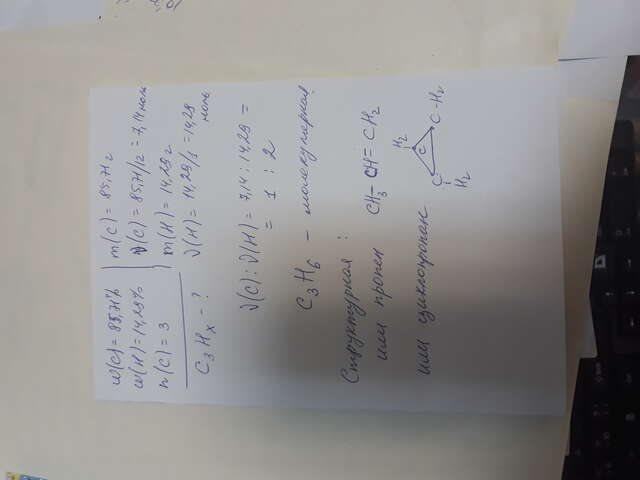 ω(C) = 85,71%
ω(H) = 14,29%
n(C) = 3
C₃Hₓ - ?
m(C) = 85,71 г
ν(C) = 85,71/12 = 7,14 моль
m(H) = 14,29 г
ν(H) = 14,29/1 = 14,29
моль
ν(C) : ν(H) = 7,14 : 14,29 =
= 1 : 2
C₃H₆ - молекулярная
Структурная :
или пропен CH₃ - CH = CH₂
или циклопропан
H₂
C
C - H₂
C
H₂